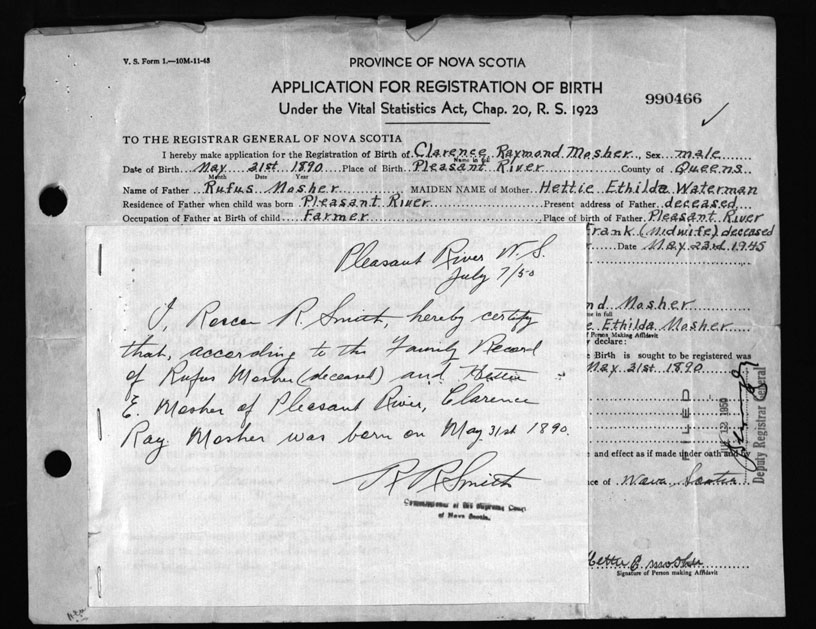 V. S. Form 1.—10M-11-43
PROVINCE OF NOVA SCOTIA
APPLICATION FOR REGISTRATION OF BIRTH
Under the Vital Statistics Act, Chap. 20, R. S. 1923
990466
TO THE REGISTRAR GENERAL OF NOVA SCOTIA
I hereby make application for the Registration of Birth of Clarence Raymond Mosher, Sex male
Name in full
Date of Birth May 21st 1890 Place of Birth Pleasant River County of Queens
Month Date Year
Name of Father Rufus Mosher MAIDEN NAME of Mother Hettie Ethilda Waterman
Residence of Father when child was born Pleasant River Present address of Father deceased
Occupation of Father at Birth of child Farmer Place of birth of Father Pleasant River
Frank (Midwife) deceased
Date May 23rd 1945
Pleasant River N.S.
July 7/50
I, Roscoe R. Smith, hereby certify
that, according to the Family Record
of Rufus Mosher (deceased) and Hettie
E. Mosher of Pleasant River, Clarence
Ray Mosher was born on May 31st 1890.
R R Smith
Commissioner of the Supreme Court
of Nova Scotia.
nd Mosher
me in full
e Ethilda Mosher
f Person Making Affidavit
y declare:
e Birth is sought to be registered was
May 21st 1890
FILED
12 1950
Deputy Registrar General
and effect as if made under oath and by
ce of Nova Scotia
Hettie E Mosher
Signature of Person making Affidavit